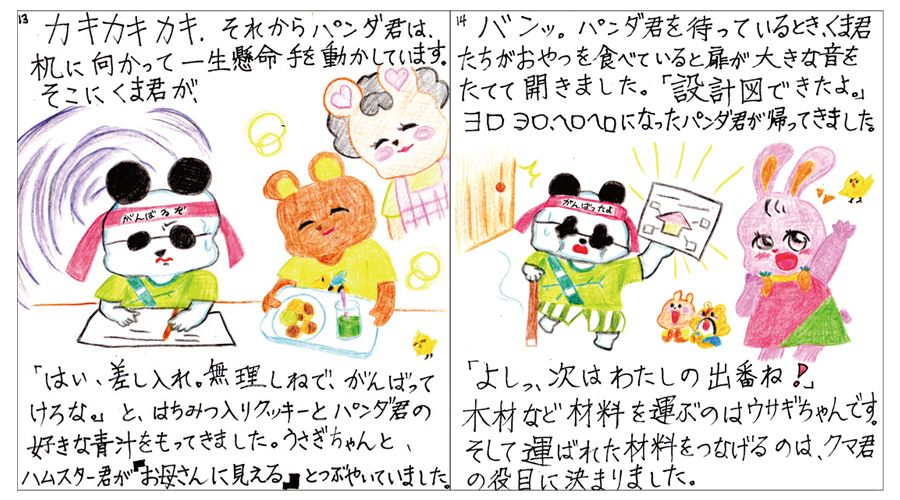 13
カキカキカキ. それからパンダ君は、
机に向かって一生懸命手を動かしています。
そこにくま君が、
がんばるぞ
「はい、差し入れ。無理しねで、がんばって
けろな。」と、はちみつ入りクッキーとパンダ君の
好きな青汁をもってきました。うさぎちゃんと、
ハムスター君が"お母さんに見える„とつぶやいていました。
14
バンッ。パンダ君を待っているとき、くま君
たちがおやつを食べていると扉が大きな音を
たてて開きました。「設計図できたよ。」
ヨロヨロ、ヘロヘロになったパンダ君が帰ってきました。
がんばったよ
「よしっ、次はわたしの出番ね!」
木材など材料を運ぶのはウサギちゃんです。
そして運ばれた材料をつなげるのは、クマ君
の役目に決まりました。